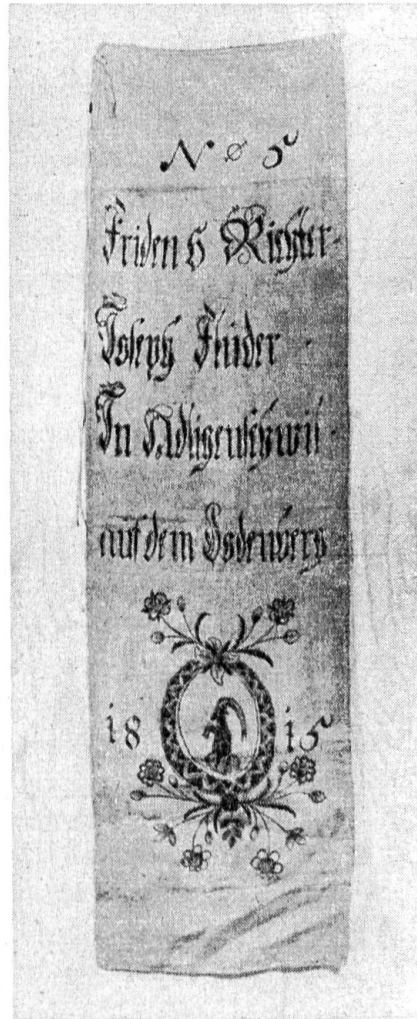 Nº 5
Fridens Richter
Joseph Fluder
In Adligenschwil
auf dem Dodenberg
18 15